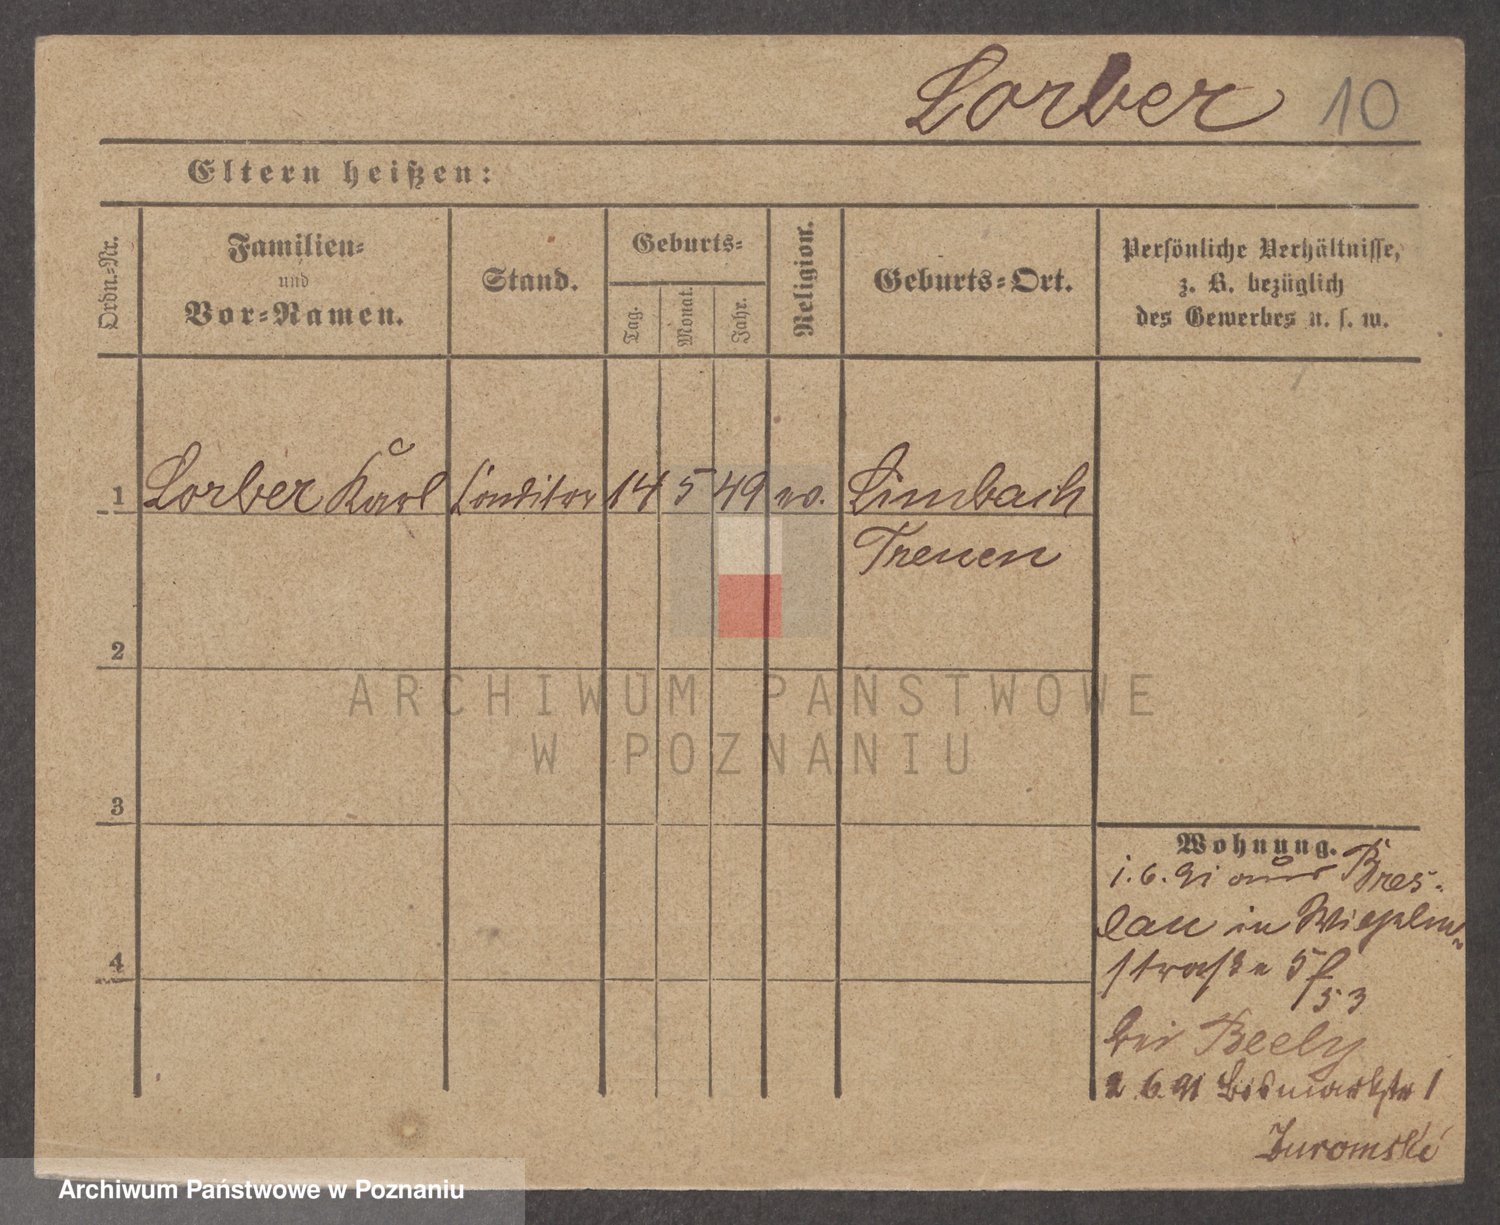 Lorber 10
Eltern heißen:
Ordn.-Nr.
Familien-
und
Vor-Namen.
Stand.
Geburts-
Tag.
Monat.
Jahr.
Religion.
Geburts-Ort.
Persönliche Verhältnisse,
z. B. bezüglich
des Gewerbes u. s. w.
1 Lorber Karl Conditor 14 5 49 ev. Limbach
Treuen
2
ARCHIWUM PAŃSTWOWE
W POZNANIU
3
4
Wohnung.
1.6.91 aus Bres-
lau in
straße 5
53
bei Beely
2.6.91 Bismarkstr 1
Archiwum Państwowe w Poznaniu